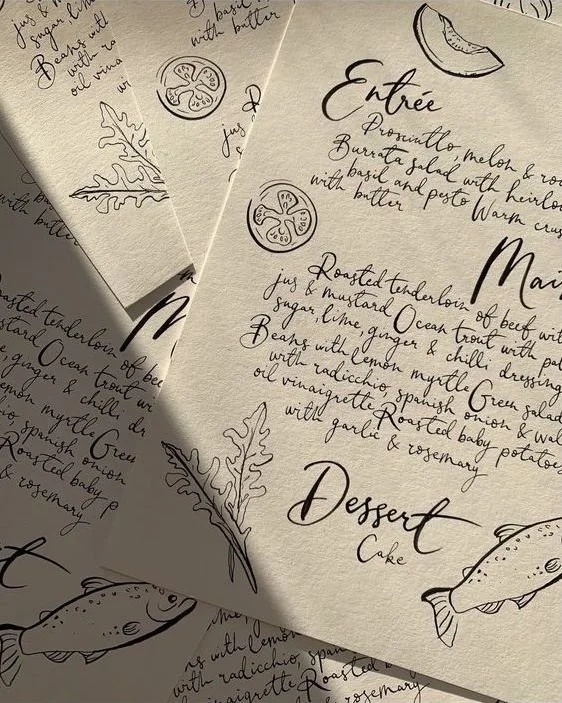 jus & m
sugar lim
Beans wit
with ra
oil vina
wi
basil
with butter
R
jus &
Entrée
Prosciutto, melon & roc
Burrata salad with heirloo
basil and pesto Warm crus
with butter
Mai
Roasted tenderloin of beef wit
jus & mustard Ocean trout with pa
sugar, lime, ginger & chilli dressing
Beans with lemon myrtle Green salad
with radicchio, spanish onion & wal
oil vinaigrette Roasted baby potatoes
with garlic & rosemary
Dessert
Cake
with butter
M
oasted tenderloin of bee
stard Ocean trout wi
e, ginger & chilli dr
emon myrtle Green
io, spanish onion
Roasted baby p
& rosemary
t
ns with lemon
with radicchio, span
vinaigrette Roasted b
rosemary